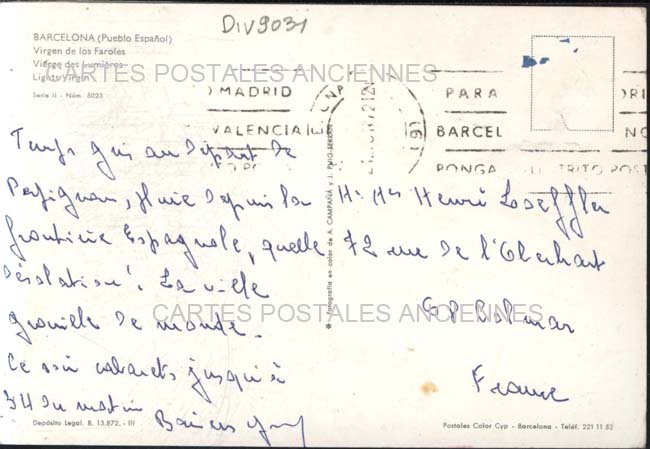 DIV9031
BARCELONA (Pueblo Español)
Virgen de los Faroles
Vierge des Lumières
Lights Virgin
Serie II - Núm. 5023
CARTES POSTALES ANCIENNES
MADRID
VALENCIA
PARA
BARCEL
PONGA DISTRITO POST
Temps gris au départ de
Perpignan, pluie depuis la
frontière Espagnole, quelle
désolation! La ville
grouille de monde.
Ce soir cabarets jusqu'à
3H du matin
Baisers
Mr Mme Henri Loeffler
72 rue de l'Oberhart
68 Colmar
France
* Fotografía en color de A. CAMPAÑÁ y J. PUIG-FERRÁN
CARTES POSTALES ANCIENNES
Depósito Legal. B. 13.872. - III
Postales Color Cyp - Barcelona - Teléf. 221 11 52